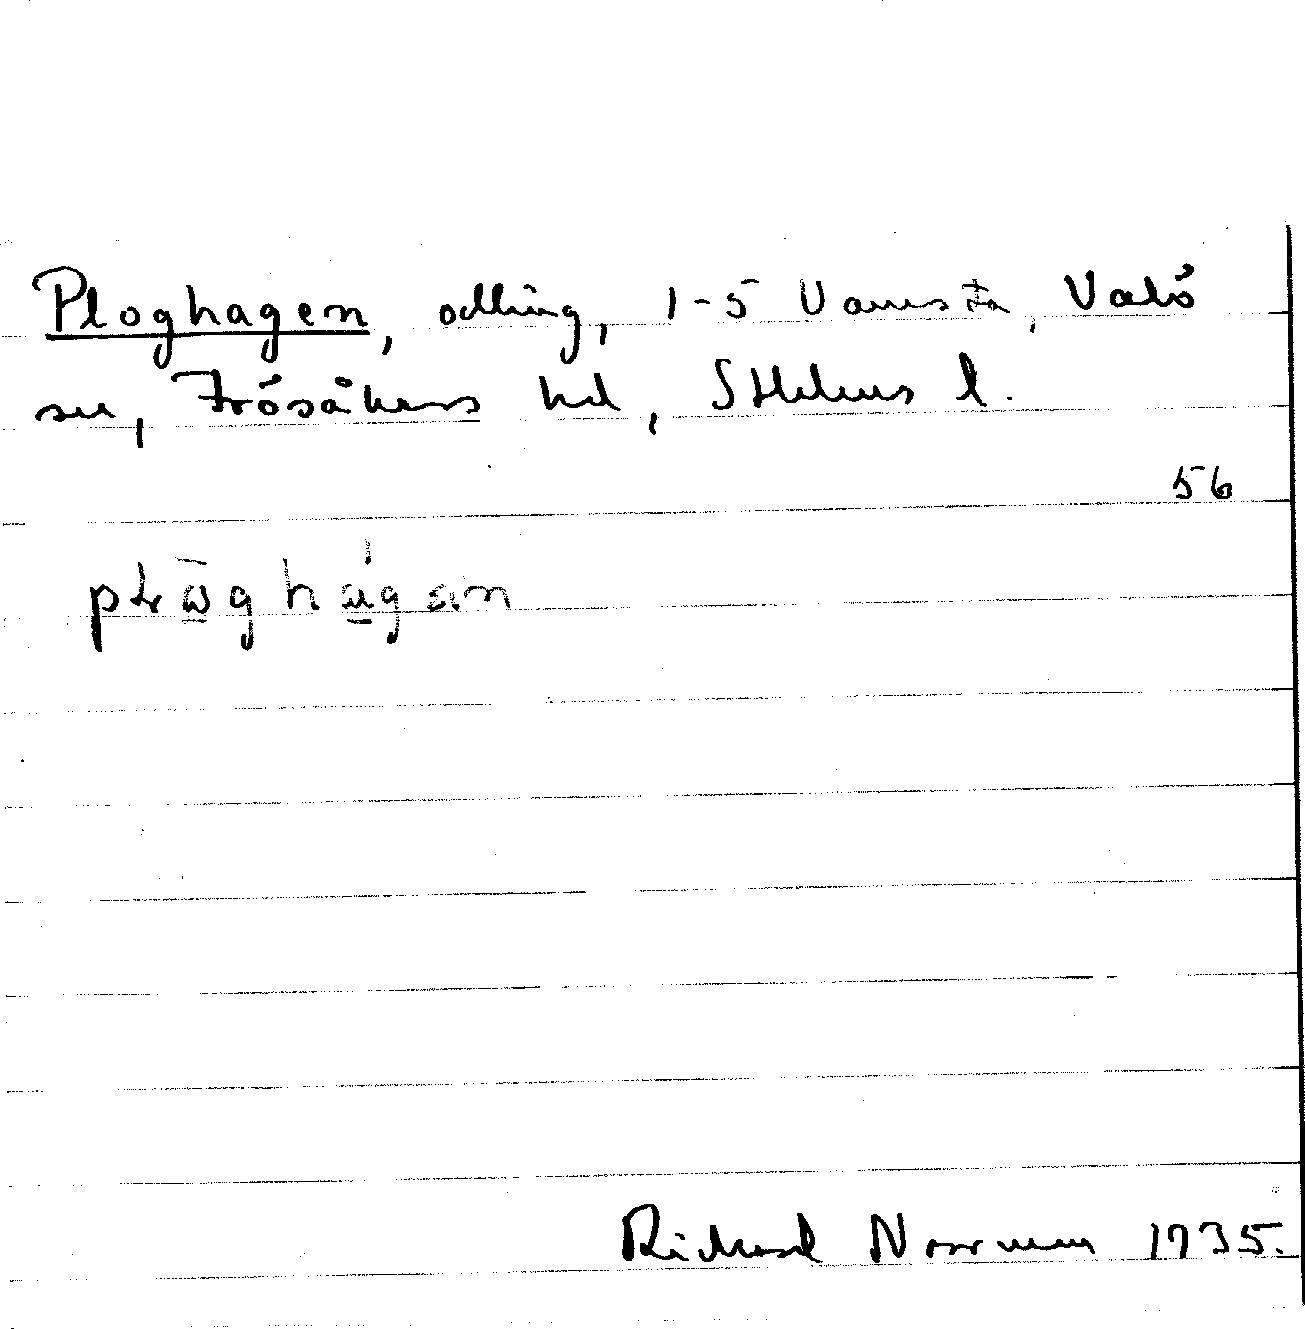 Ploghagen, odling, 1-5 Vamsta, Valö
sn, Frösåkers hd, Sthlms l.
56
Richard Norrman 1935.